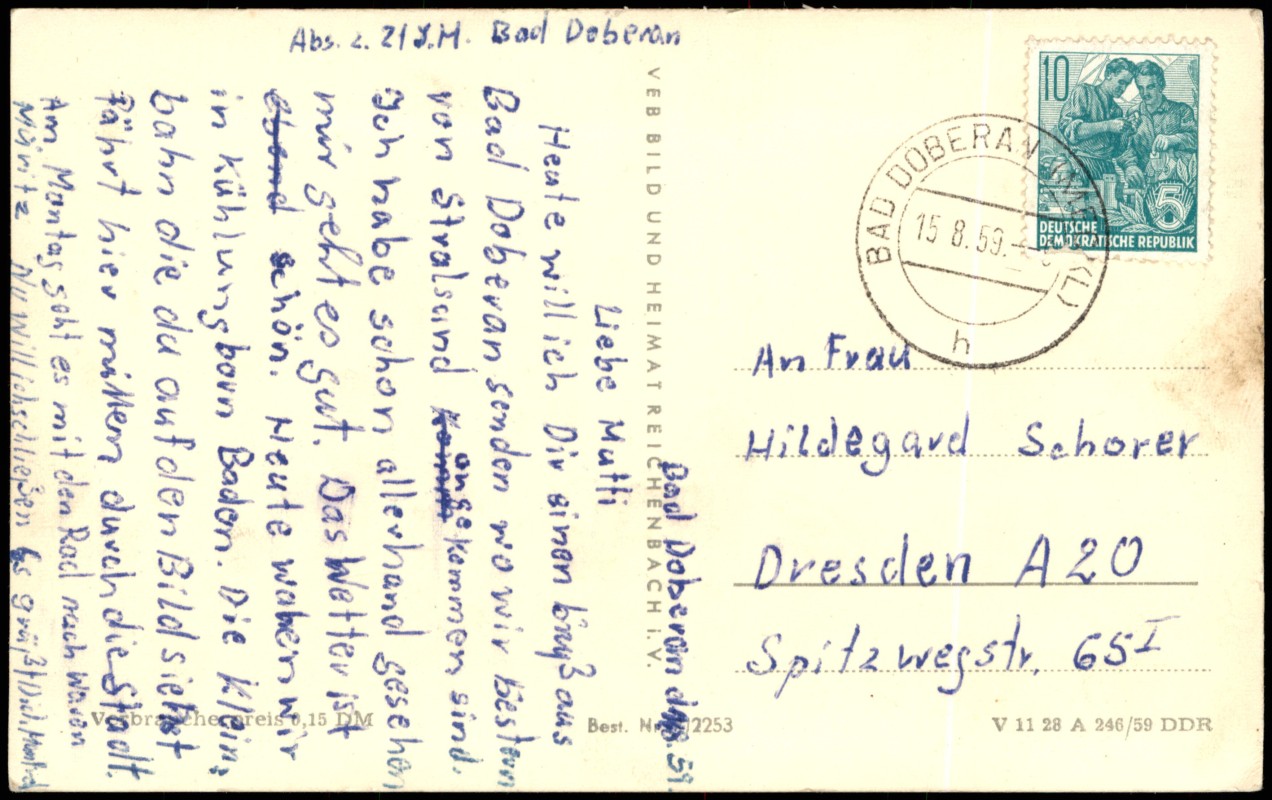 Abs. z. Zt J.H. Bad Doberan
Bad Doberan d. 59.
Liebe Mutti
Heute will ich Dir einen Gruß aus
Bad Doberan senden wo wir bestern
von Stralsund angekommen sind.
Ich habe schon allerhand gesehen
mir geht es gut. Das Wetter ist
schön. Heute waben wir
in Kühlungborn Baden. Die Klein,
bahn die du auf den Bild siehst
fährt hier mitten durch die Stadt.
Am Montag geht es mit den Rad nach Waren
Müritz Nu will ich schließen Es grüßt Dich
VEB BILD UND HEIMAT REICHENBACH i. V.
10
DEUTSCHE
DEMOKRATISCHE REPUBLIK
5
BAD DOBERAN (MECKL)
15.8.59.
h
An Frau
Hildegard Schorer
Dresden A20
Spitzwegstr. 65 I
Verbraucherpreis 0,15 DM
Best. Nr. /2253
V 11 28 A 246/59 DDR